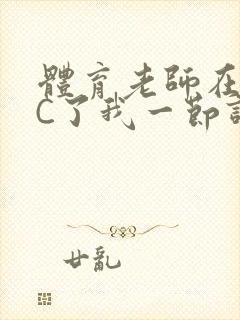 體育老師在
C了我一節
廿亂